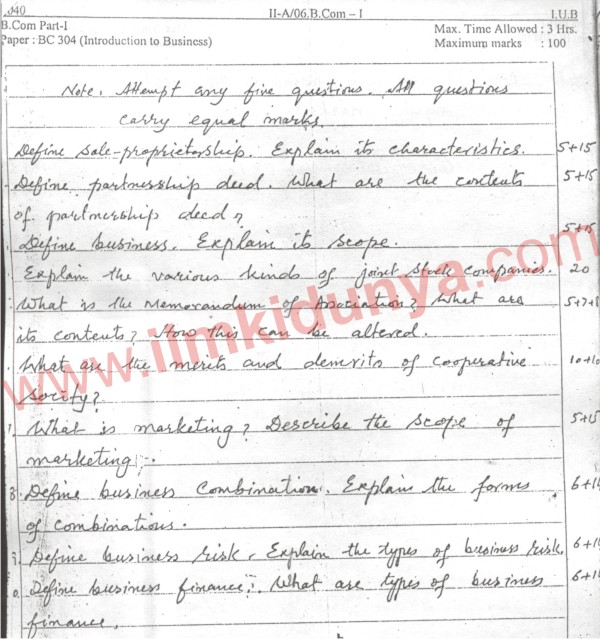 040 II-A/06.B.Com – I I.U.B
B.Com Part-I Max. Time Allowed : 3 Hrs.
Paper : BC 304 (Introduction to Business) Maximum marks : 100
Note. Attempt any five questions. All questions
carry equal marks.
Define Sole-proprietorship. Explain its characteristics. 5+15
Define partnership deed. What are the contents 5+15
of partnership deed?
Define business. Explain its scope. 5+15
Explain the various kinds of joint Stock Companies. 20
What is the Memorandum of Association? What are 5+7+8
its contents? How this can be altered.
What are the merits and demerits of cooperative 10+10
Socity?
What is marketing? Describe the scope of 5+15
marketing.
8. Define business Combination. Explain the forms 6+14
of combinations.
9. Define business risk. Explain the types of business risk. 6+14
0. Define business finance. What are types of business 6+14
finance.
www.ilmkidunya.com